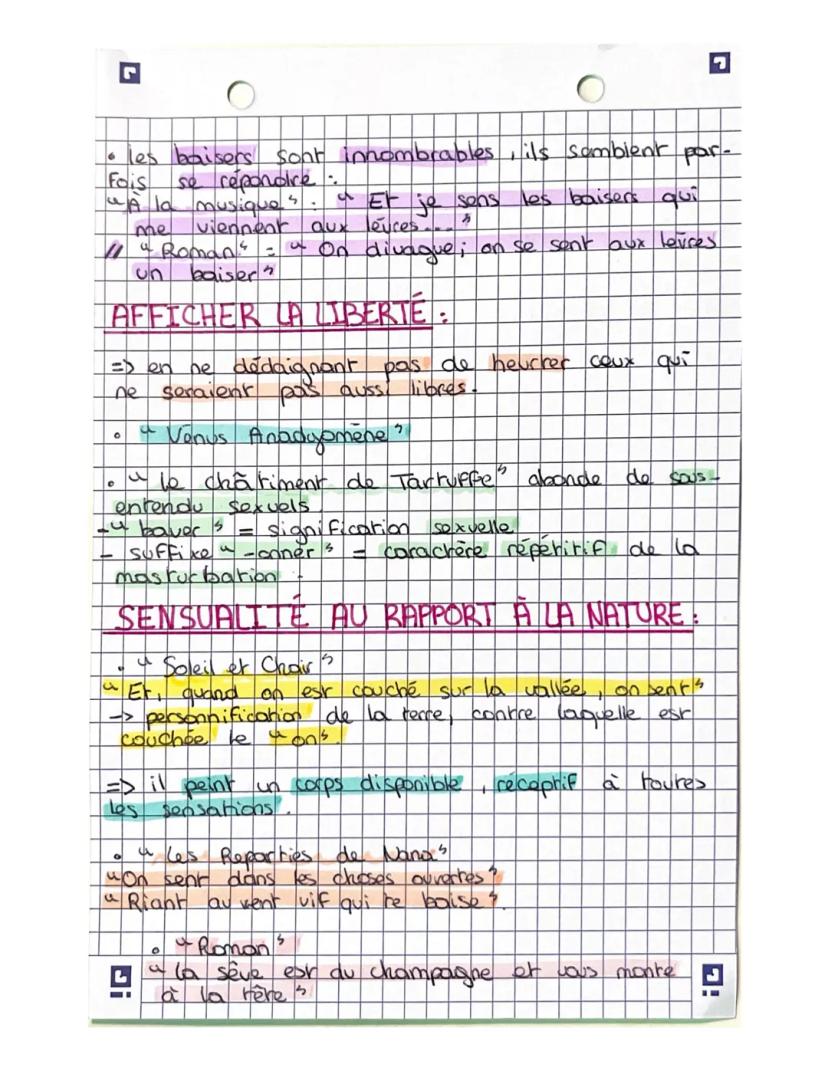 • les baisers sont innombrables, ils semblent par-
fois se répondre :
"À la musique" : "Et je sens les baisers qui
me viennent aux lèvres..."
// "Roman" = "On divague; on se sent aux lèvres
un baiser"
AFFICHER LA LIBERTÉ :
=> en ne dédaignant pas de heurter ceux qui
ne seraient pas aussi libres.
• "Vénus Anadyomène"
• "le châtiment de Tartuffe" abonde de sous-
entendu sexuels
- "baver" = signification sexuelle
- suffixe "-onner" = caractère répétitif de la
masturbation.
SENSUALITÉ AU RAPPORT À LA NATURE :
• "Soleil et Chair"
"Et, quand on est couché sur la vallée, on sent"
-> personnification de la terre, contre laquelle est
couchée le "on".
=> il peint un corps disponible, réceptif à toutes
les sensations.
• "Les Reparties de Nina"
"On sent dans les choses ouvertes"
"Riant au vent vif qui te baise".
• "Roman"
"la sève est du champagne et vous monte
à la tête"